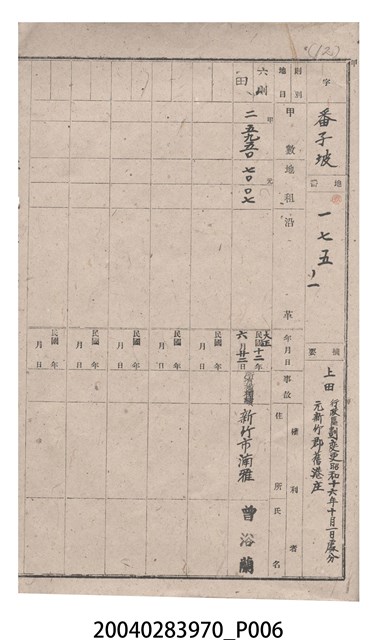 (12)
字 番子坡
地番 一七五ノ一
摘要 上田
行政區劃變更昭和十六年十月一日處分
元新竹郡舊港庄
則別 地目 甲數 地租 沿革 年月日 事故 權利者 住所 氏名
六則 田 二甲五九五〇 七〇元〇七 大正 民國十二年六月廿二日 新竹市湳雅 曾浴蘭
民國 年 月 日
民國 年 月 日
民國 年 月 日
民國 年 月 日
民國 年 月 日
20040283970_P006